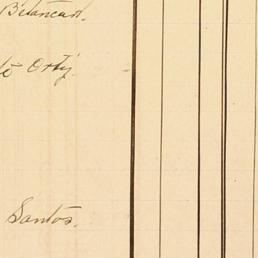 Betancur.
Ortiz.
Santos.